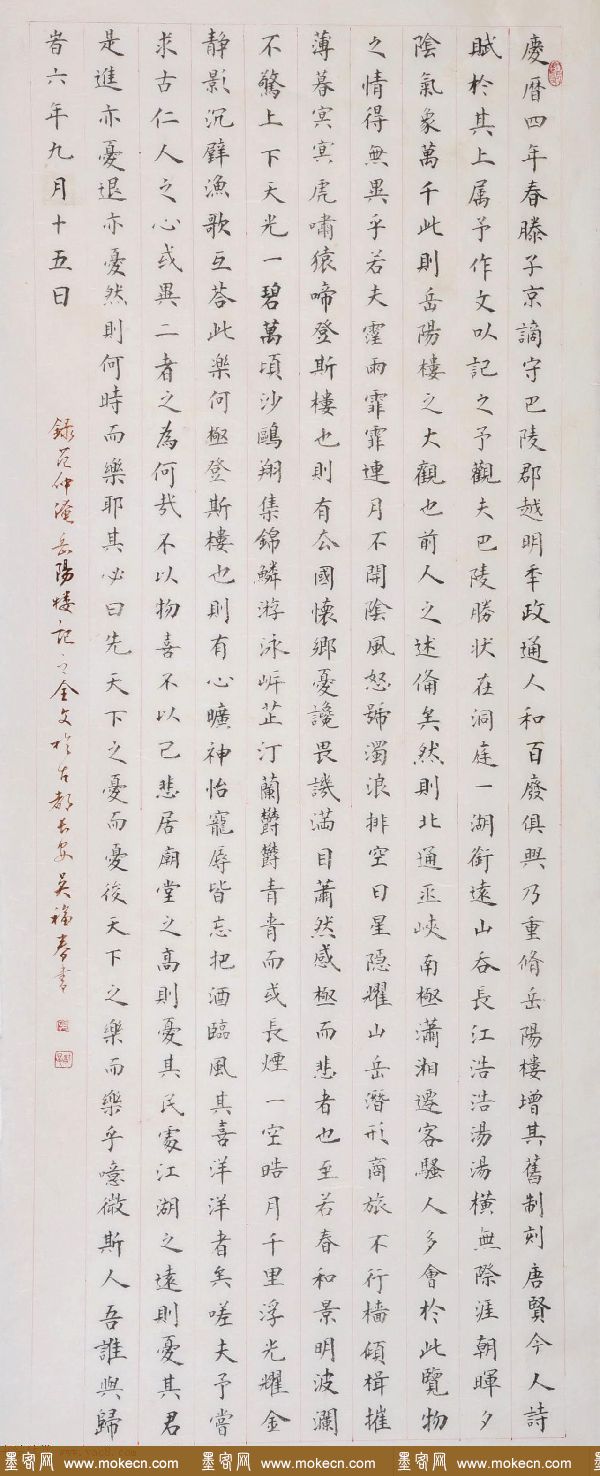 慶暦四年春滕子京謫守巴陵郡越明年政通人和百廢俱興乃重脩岳陽樓增其舊制刻唐賢今人詩
賦於其上属予作文以記之予觀夫巴陵勝状在洞庭一湖銜遠山吞長江浩浩湯湯橫無際涯朝暉夕
陰氣象萬千此則岳陽樓之大觀也前人之述備矣然則北通巫峽南極瀟湘遷客騷人多會於此覽物
之情得無異乎若夫霪雨霏霏連月不開陰風怒號濁浪排空日星隱耀山岳潛形商旅不行檣傾楫摧
薄暮冥冥虎嘯猿啼登斯樓也則有去國懷鄉憂讒畏譏満目蕭然感極而悲者也至若春和景明波瀾
不驚上下天光一碧萬頃沙鷗翔集錦鱗游泳岸芷汀蘭欝欝青青而或長煙一空皓月千里浮光耀金
静影沉璧漁歌互荅此樂何極登斯樓也則有心曠神怡寵辱皆忘把酒臨風其喜洋洋者矣嗟夫予嘗
求古仁人之心或異二者之為何哉不以物喜不以己悲居廟堂之高則憂其民處江湖之遠則憂其君
是進亦憂退亦憂然則何時而樂耶其必曰先天下之憂而憂後天下之樂而樂乎噫微斯人吾誰與歸
旹六年九月十五日
錄范仲淹岳陽樓記之全文於古都長安吳福春書
墨客网 www.mokecn.com 墨客网 www.mokecn.com 墨客网 www.mokecn.com